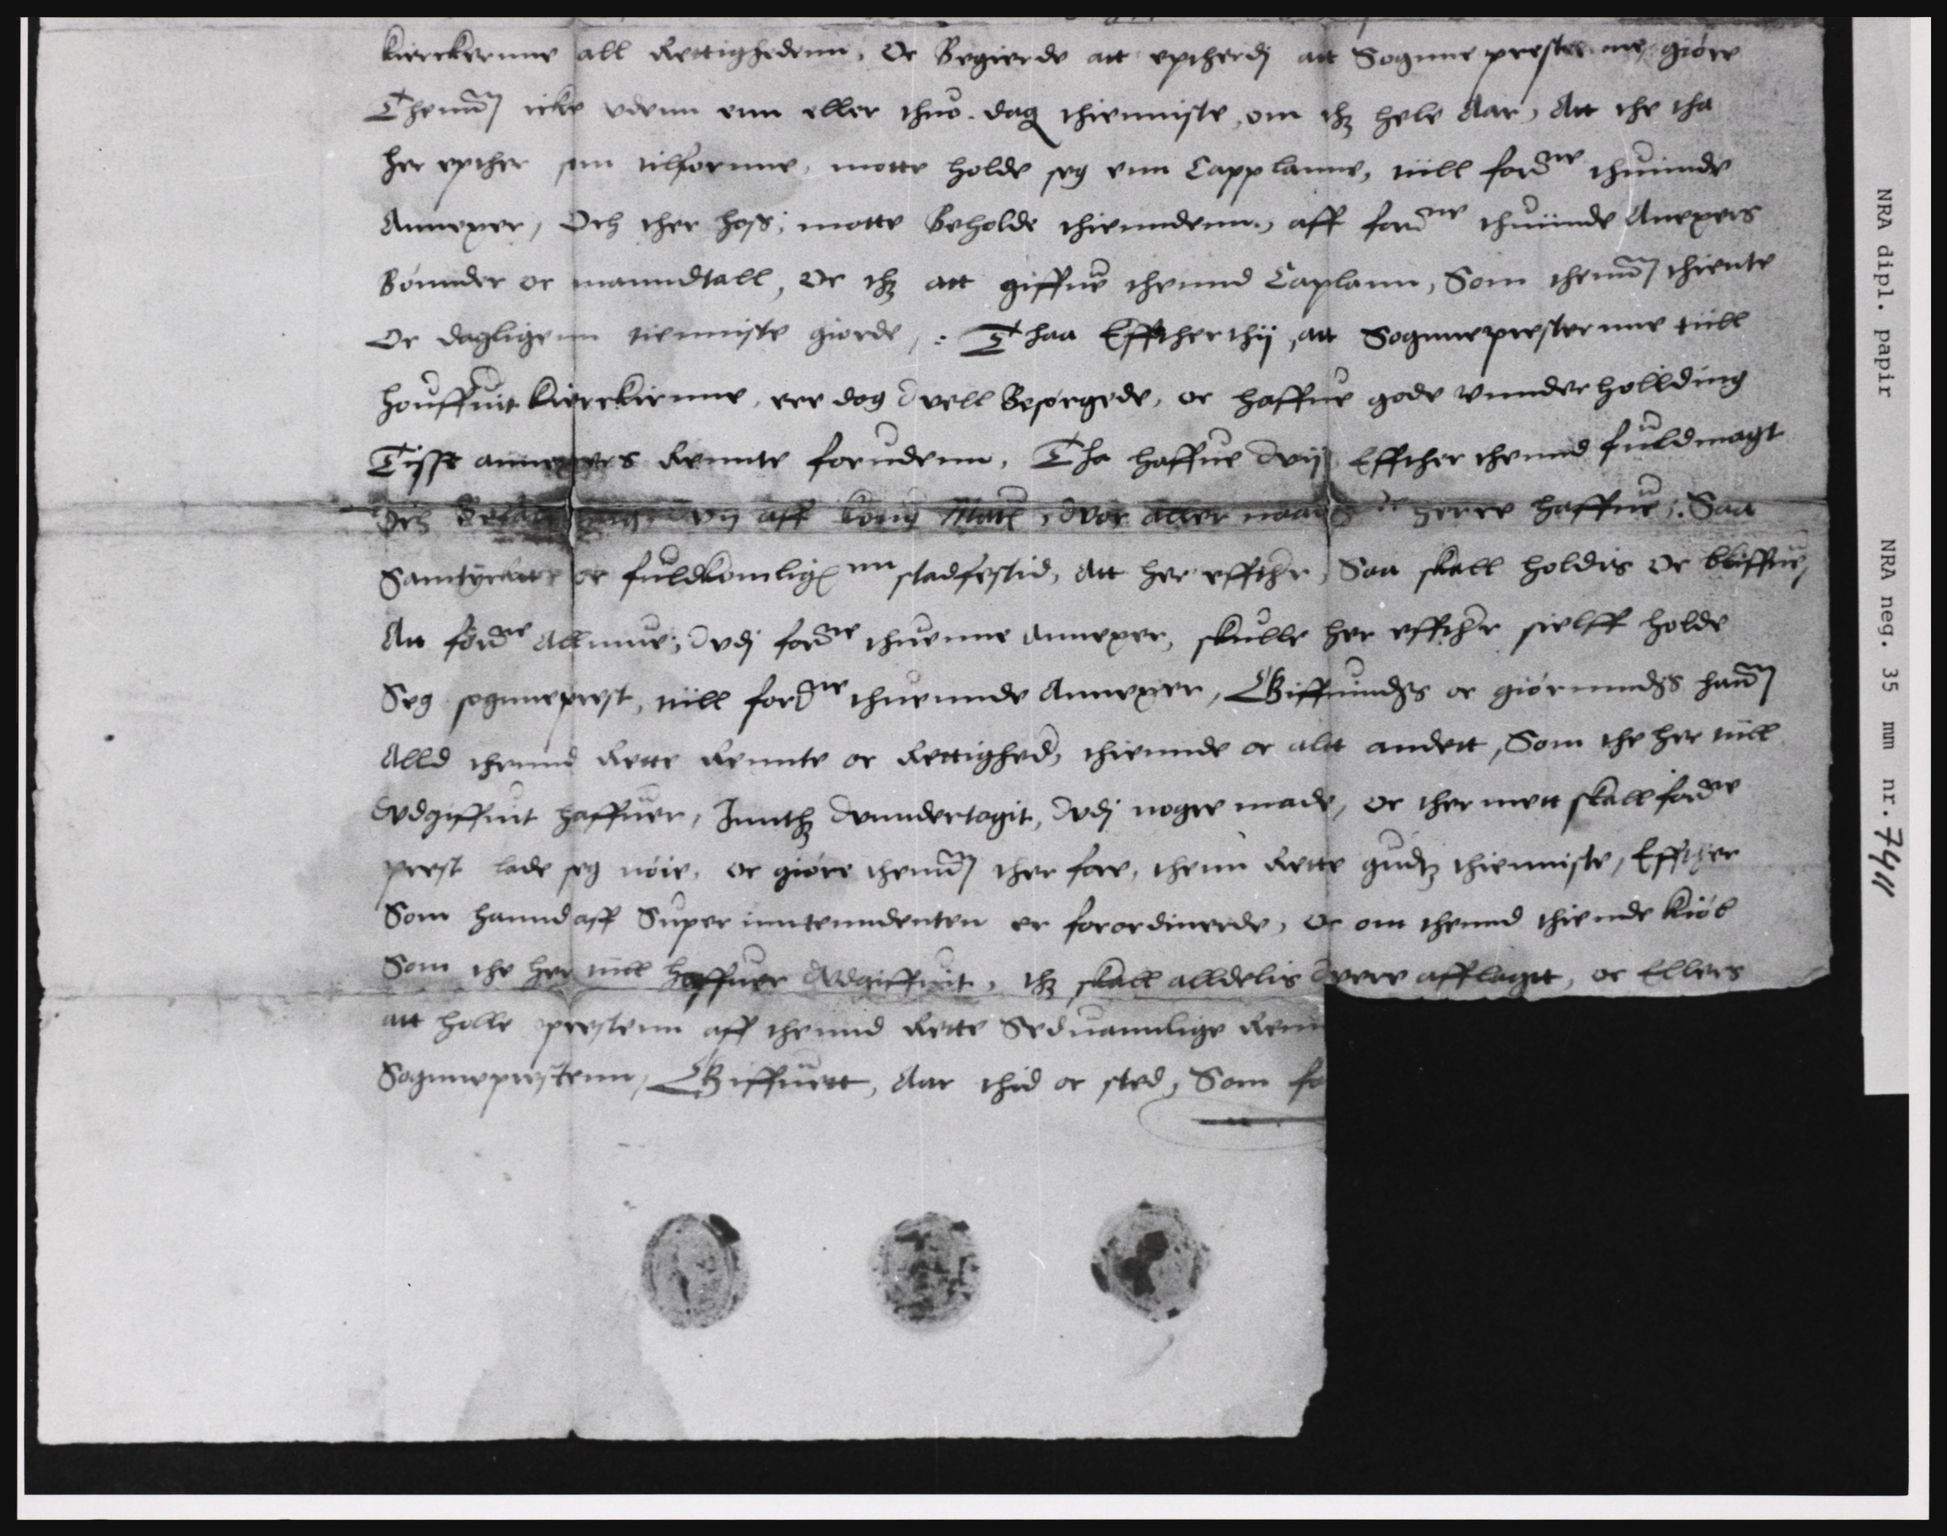 kierckernne all Rettighedenn, Oc Begierde att eptherdj att Sognne presterne giøre
Thennom icke vdenn enn eller thuo dag thienniste, om thz hele Aar, Att the tha
her epther som tilfornne, motte holde seg enn Capplanne, till fordne thuinde
Annexer, Och ther hoss, motte Beholde thienndenn, aff fordne thuinde Anexers
Bønnder oc manndtall, Oc thz att giffue thennd Caplann, Som thennom thiente
Oc dagligenn tienniste giorde, Thaa Effther thij, att Sognnepresternne till
houffuit kierckirnne, ere dog vell Besørgede, oc haffue gode Vnnderholilding
Tisse annexers Rennte forudenn, Tha haffue vij Effther thennd fuldmagt
Och vij aff konng Matz, vor aller naad herre haffue, Saa
Samtyckt oc fuldkomligenn stadfestid, Att her effther, Saa skall holdis Oc bliffue,
Att fordne Allmue, vdj fordne thuenne Annexer, skulle her effther sielff holde
Seg sognneprest, till fordne thuennde Annexer, Giffuindss oc giørinndss hannom
Alld thennd Rette Rennte oc Rettighed, thiennde oc altt andett, Som the her till
vdgiffuit haffuer, Inntthz vnndertagit, vdj nogre made, Oc ther mett skall fordne
prest lade seg nøie, oc giøre thennom ther fore, thenn Rette gudtz thienniste, Effther
Som hannd aff Super inntenndenten er forordinerde, Oc om thennd thiende kiøb
Som the her till haffuer vdgiffuit, thz skall alldelis vere afflagtt, oc Ellers
att holle prestenn aff thennd Rette Seduannlige Renn
Sognneprestenn, Giffuett, Aar thid oc sted, Som fo
NRA dipl. papir NRA neg. 35 mm nr. 7411